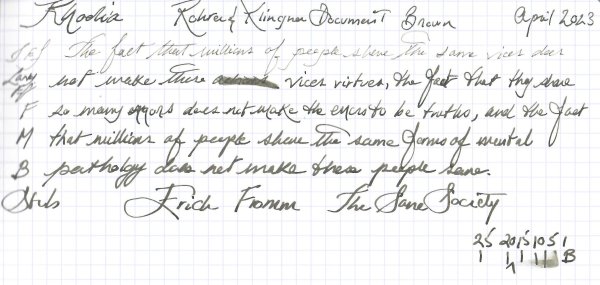 Rhodia Rohrer & Klingner Document Brown April 2023
The fact that millions of people share the same vices does
not make these vices virtues, the fact that they share
F so many errors does not make the errors to be truths, and the fact
M that millions of people share the same forms of mental
B pathology does not make these people sane.
Stub Erich Fromm The Sane Society
25 20 15 10 5 1
B